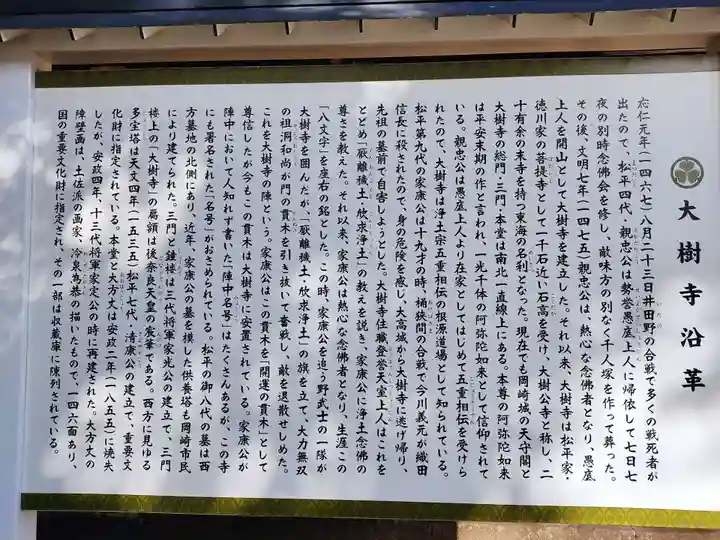 大樹寺沿革
応仁元年(一四六七)八月二十三日井田野の合戦で多くの戦死者が
出たので、松平四代、親忠公は勢誉愚底上人に帰依して七日七
夜の別時念佛会を修し、敵味方の別なく千人塚を作って葬った。
その後、文明七年(一四七五)親忠公は、熱心な念佛者となり、愚底
上人を開山として大樹寺を建立した。それ以来、大樹寺は松平家・
徳川家の菩提寺として一千石近い石高を受け、大樹公寺と称し、二
十有余の末寺を持つ東海の名刹となった。現在でも岡崎城の天守閣と
大樹寺の総門・三門・本堂は南北一直線上にある。本尊の阿弥陀如来
は平安末期の作と言われ、一光千体の阿弥陀如来として信仰されて
いる。親忠公は愚底上人より在家としてはじめて五重相伝を受けら
れたので、大樹寺は浄土宗五重相伝の根源道場として知られている。
松平第九代の家康公は十九才の時、桶狭間の合戦で今川義元が織田
信長に殺されたので、身の危険を感じ、大高城から大樹寺に逃げ帰り、
先祖の墓前で自害しようとした。大樹寺住職登誉天室上人はこれを
とどめ「厭離穢土・欣求浄土」の教えを説き、家康公に浄土念佛の
尊さを教えた。それ以来、家康公は熱心な念佛者となり、生涯この
「八文字」を座右の銘とした。この時、家康公を追う野武士の一隊が
大樹寺を囲んだが、「厭離穢土・欣求浄土」の旗を立て、大力無双
の祖洞和尚が門の貫木を引き抜いて奮戦し、敵を退散せしめた。
これを大樹寺の陣という。家康公はこの貫木を「開運の貫木」として
尊信したが今もこの貫木は大樹寺に安置されている。家康公が
陣中において人知れず書いた「陣中名号」がたくさんあるが、この寺
にも署名された「名号」がおさめられている。松平の御八代の墓は西
方墓地の北側にあり、近年、家康公の墓を模した供養塔も岡崎市民
により建てられた。三門と鐘楼は三代将軍家光公の建立で、三門
楼上の「大樹寺」の扁額は後奈良天皇の宸筆である。西方に見ゆる
多宝塔は天文四年(一五三五)松平七代・清康公の建立で、重要文
化財に指定されている。本堂と大方丈は安政二年(一八五五)に焼失
したが、安政四年、十三代将軍家定公の時に再建された。大方丈の
障壁画は、土佐派の画家、冷泉為恭の描いたもので、一四六面あり、
国の重要文化財に指定され、その一部は収蔵庫に陳列されている。